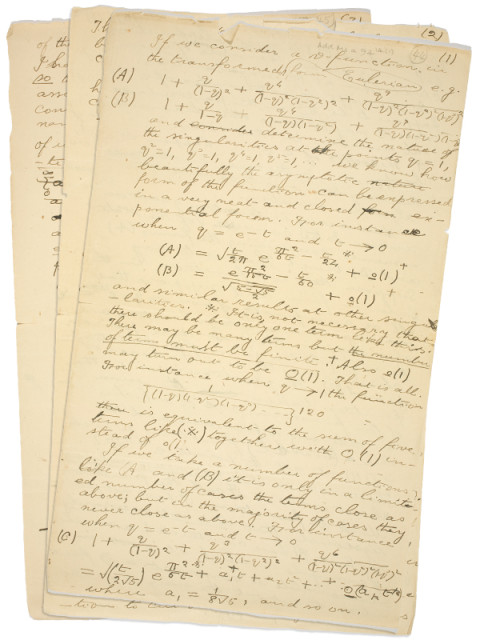 (2)
(2)
(1)
If we consider a ϑ-function, in
the transformed Eulerian e.g.
(A) 1 + q/(1-q)² + q⁴/(1-q)²(1-q²)² + q⁹/(1-q)²(1-q²)²(1-q³)²
(B) 1 + q/1-q + q⁴/(1-q)(1-q²) + q⁹/(1-q)(1-q²)(1-q³)
and determine the nature of
the singularities at the points q = 1,
q² = 1, q³ = 1, q⁴ = 1, .. we know how
beautifully the asymptotic
form of the function can be expressed
in a very neat and closed ex-
ponential form. For instance
when q = e^-t and t → 0
(A) = √(t/2π) e^(π²/6t - t/24) + o(1)
(B) = e^(π²/15t - t/60) / √((5-√5)/2) + o(1)
and similar results at other sing-
ularities. It is not necessary that
there should be only one term like this.
There may be many terms but the number
of terms must be finite. Also o(1)
may turn out to be O(1). That is all.
For instance when q → 1 the function
1/{(1-q)(1-q²)(1-q³) ...}120
is equivalent to the sum of five
terms like (*) together with O(1) in-
stead of o(1).
If we take a number of functions
like (A) and (B) it is only in a limit-
ed number of cases the terms close as
above; but in the majority of cases they
never close as above. For instance
when q = e^-t and t → 0
(C) 1 + q/(1-q)² + q³/(1-q)²(1-q²)² + q⁶/(1-q)²(1-q²)²(1-q³)²
= √(t/2π√5) e^(π²/5t + a₁t + a₂t² + ... + O(a_k t^k))
where a₁ = 1/8√5, and so on.